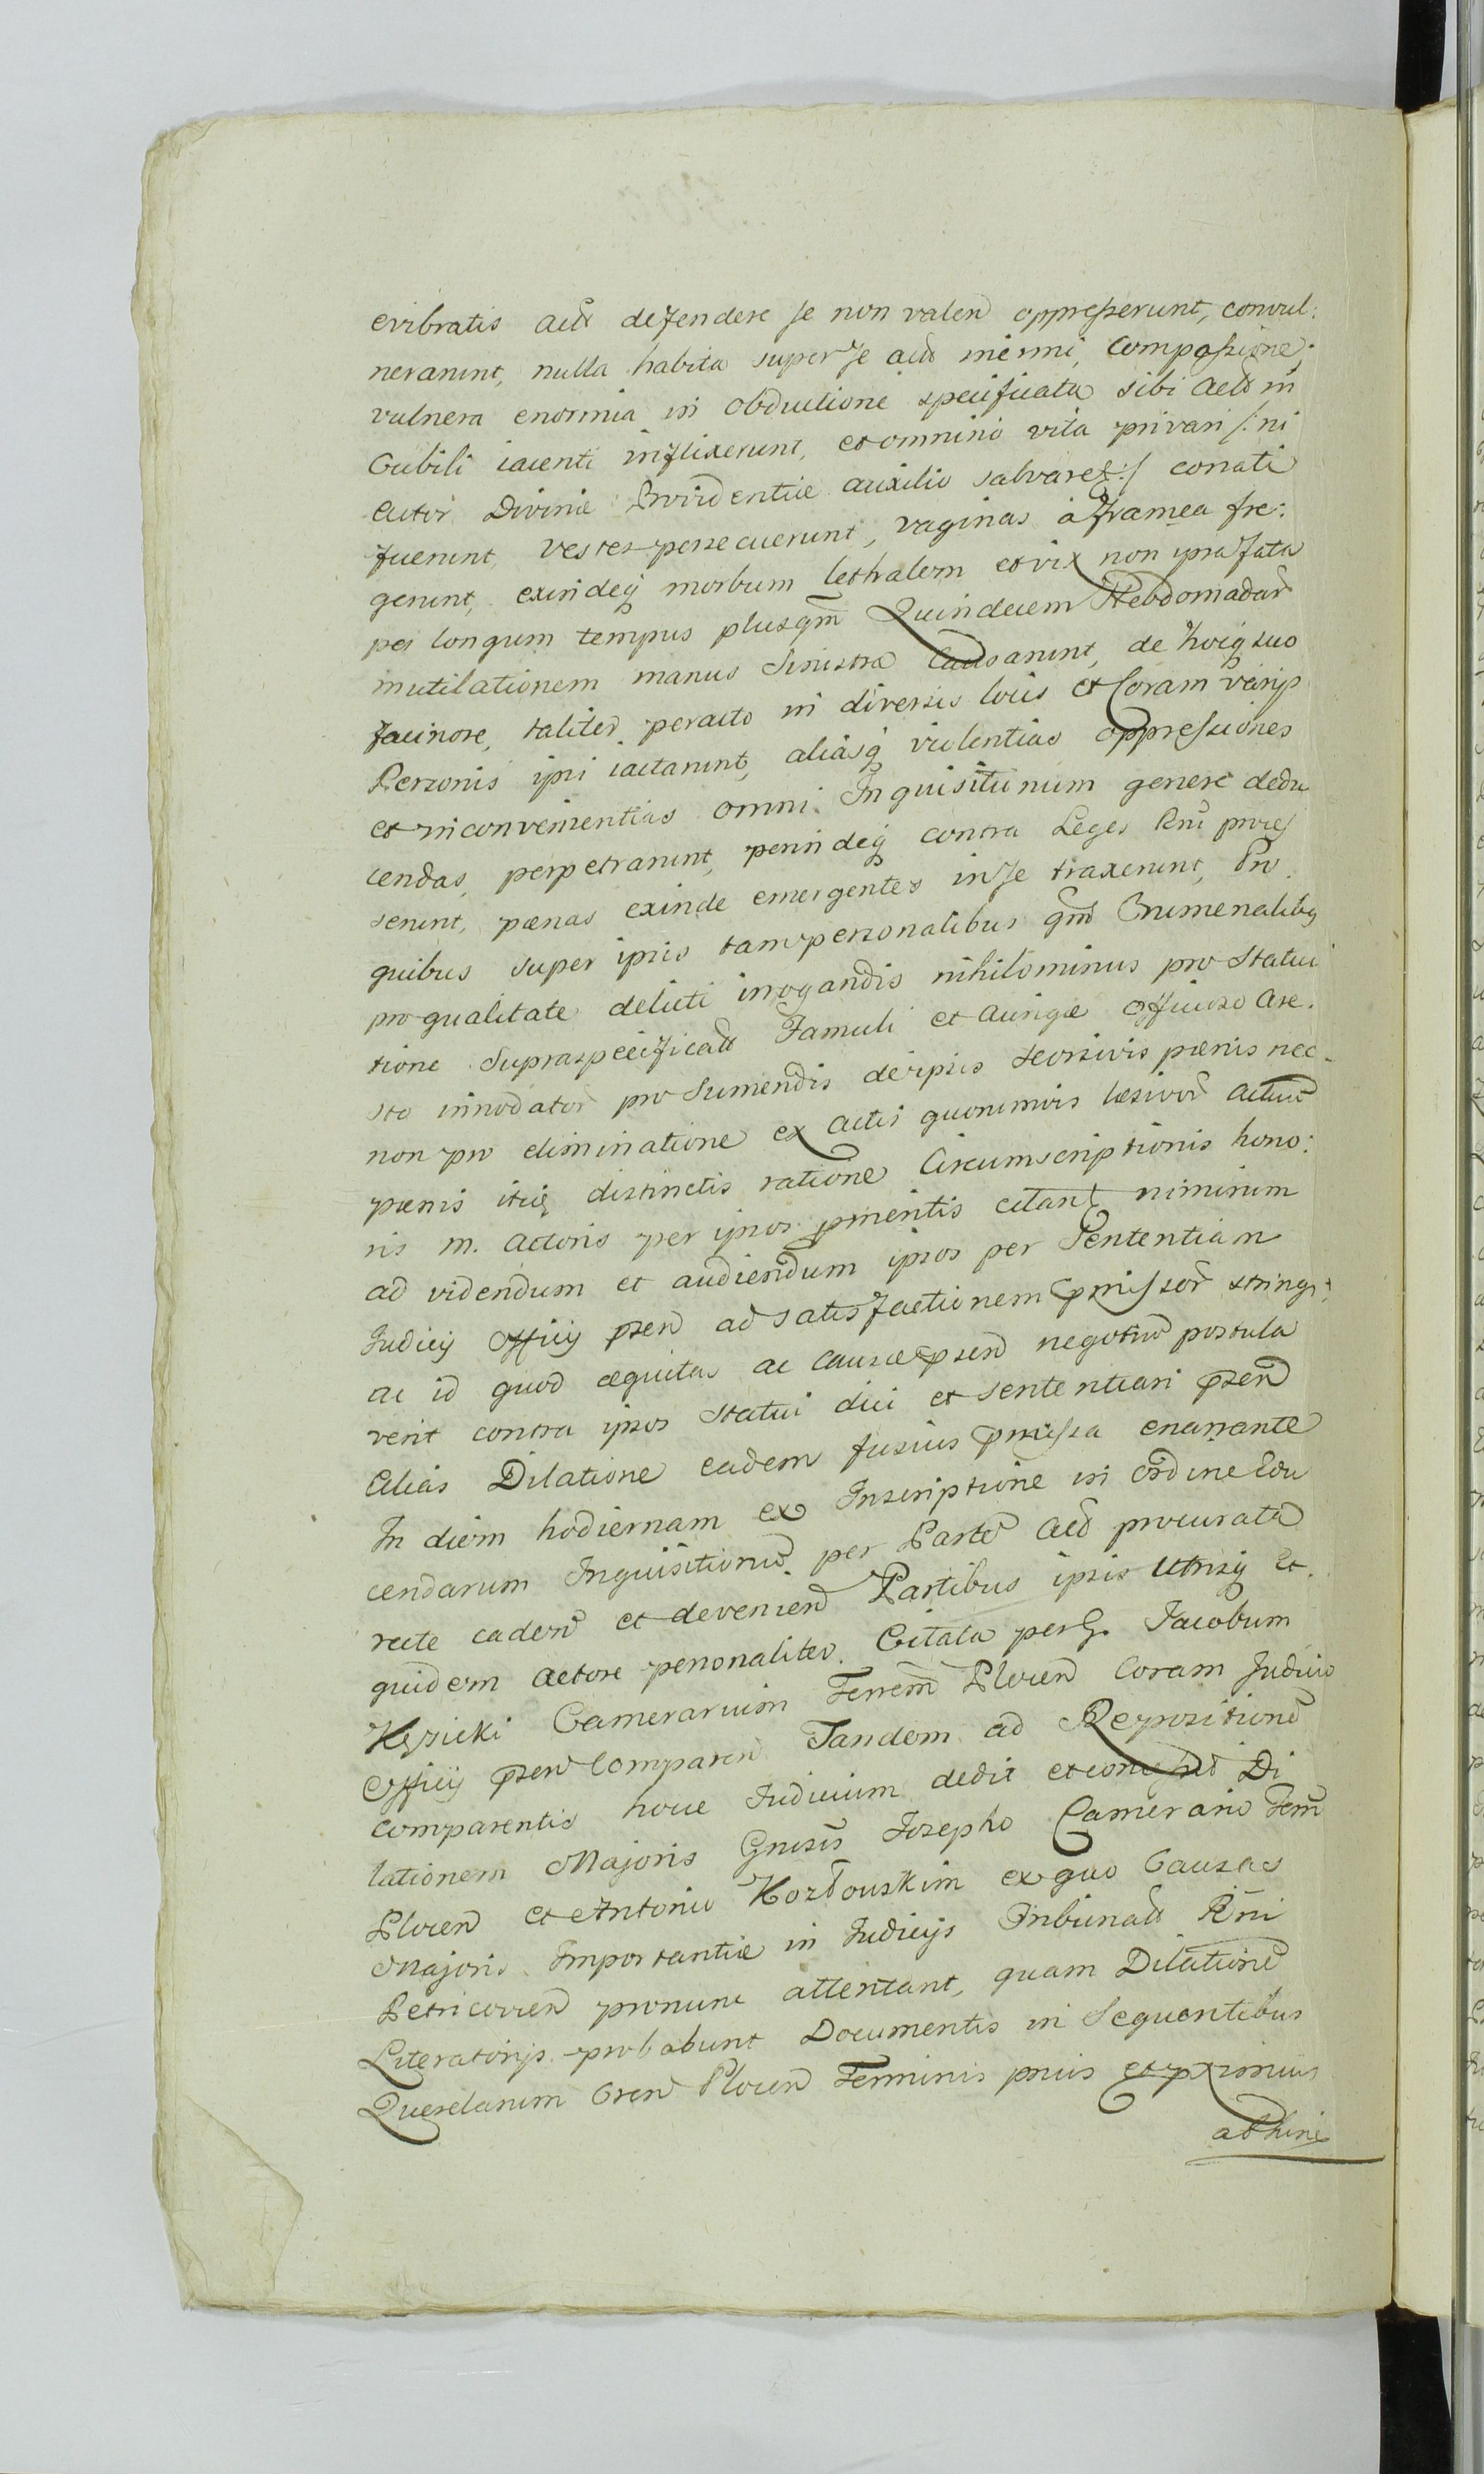 evibratis act defendere se non valen oppresserunt, convul:
nerarunt, nulla habita super se act inermi, Compassione,
vulnera enormia in obductione specificata sibi act in
Cubili iacenti inflixerunt, et omnino vita privari /: ni
actor Divinæ Providentiæ auxilio salvaret :/ conati
fuerunt, vestes persecuerunt, vaginas à framea fre:
gerunt, exindeq morbum lethalem et vix non præfata
per longum tempus plusqm Quindecem Hebdomadar
mutilationem manus Sinistræ Causarunt, de hocq suo
facinore, taliter peracto in diversis locis et Coram varijs
Personis ipsi iactarunt, aliasq violentias oppressiones
et inconvenientias omni Inquisitionum genere dedu
cendas, perpetrarunt, perindeq contra Leges Rni proces
serunt, pænas exinde emergentes in se traxerunt, Pro
quibus super ipsis tam personalibus qm Crumenalibq
pro qualitate delicti irrogandis nihilominus pro Statui
tione Supraspecificatt Famuli et Aurigæ officioso Are.
sto innodator pro Sumendis de ipsis seorsivis pænis nec
non pro eliminatione ex Actis quorumvis læsivor actuu
pænis itiq distinctis ratione Circumscriptionis hono:
ris m. Actoris per ipsos pmentis citant nimirum
ad videndum et audiendum ipsos per Sententiam
Judicij Officij psen ad satisfactionem pmissor stringi:
ac id quod æquitas ac causæ psen negotiu postula
verit contra ipsos statui dici et sententiari psen
Alias Dilatione eadem fusius pmissa enarrante
In diem hodiernam ex Inscriptione in ordine Edu
cendarum Inquisitionu per Parte Act procurata
recte caden et devenien Partibus ipsis Utrisq Et
quidem Actore personaliter. Citata per G. Jacobum
Kęsicki Camerarium Terrem Plocen Coram Judicio
Officij psen Comparen Tandem ad Repositione
comparentis hocce Judicium dedit et concessit Di
lationem Majoris Gnosis Josepho Camerario Terrm
Plocen et Antonio Kozłouskim ex quo Causas
Majoris Importantiæ in Judicijs Tribunall Rni
Petricovien pronunc attentant, quam Dilatione
Literatorijs probabunt Documentis in Sequentibus
Querelarum Cren Plocen Terminis pmis et pximius
abhinc